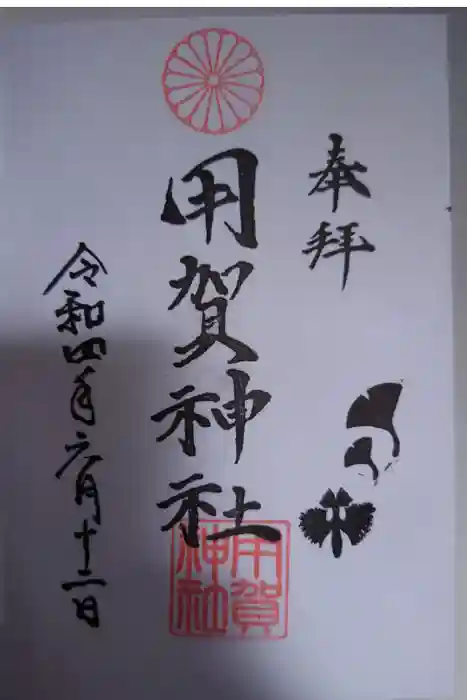 奉拝
用賀神社
用賀神社
令和四年六月十二日